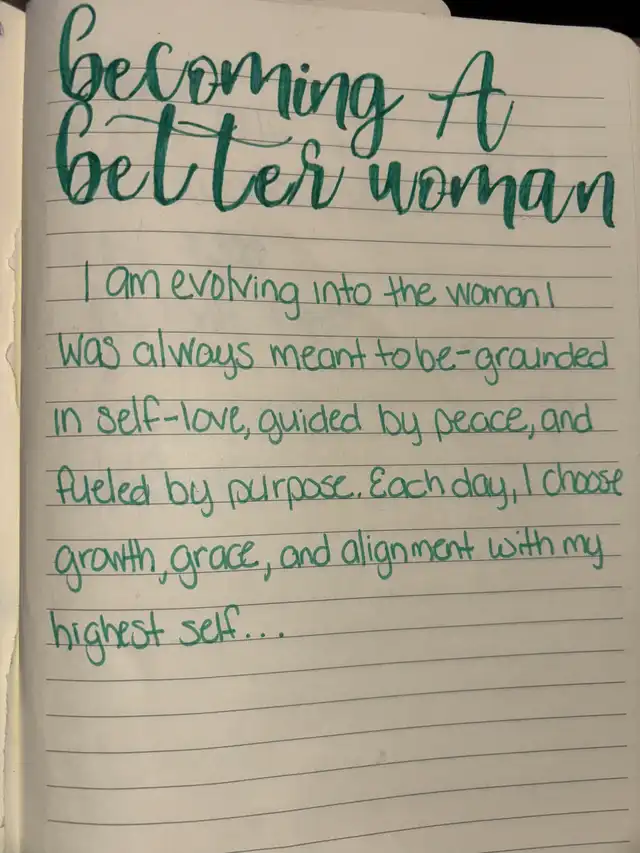 becoming A
better woman
I am evolving into the woman I
was always meant to be-grounded
in self-love, guided by peace, and
fueled by purpose. Each day, I choose
growth, grace, and alignment with my
highest self...